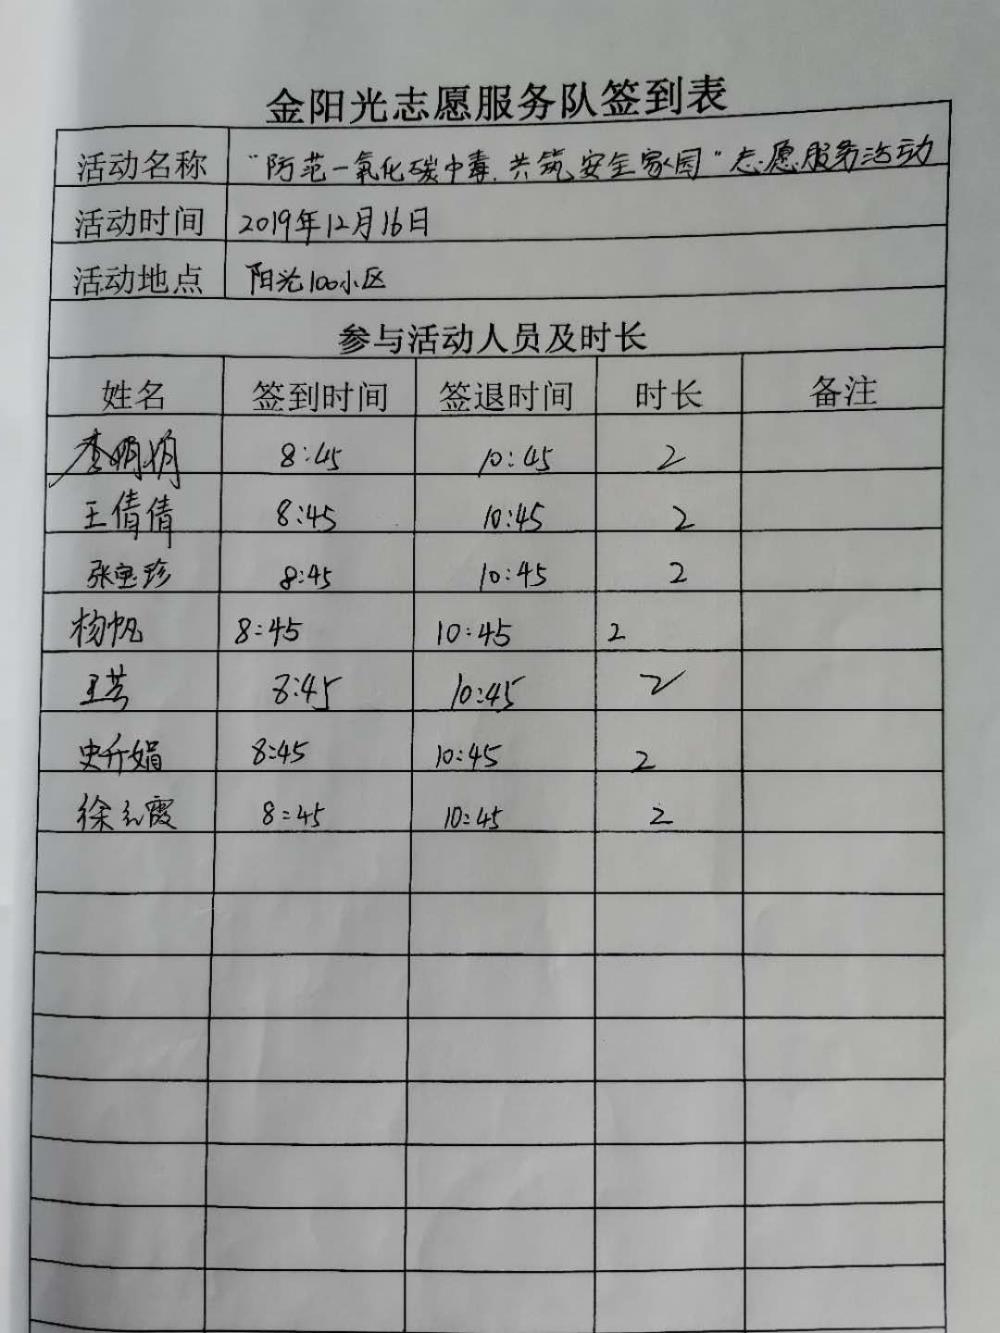 金阳光志愿服务队签到表
活动名称 "防范一氧化碳中毒,共筑安全家园"志愿服务活动
活动时间 2019年12月16日
活动地点 阳光100小区
参与活动人员及时长
姓名 签到时间 签退时间 时长 备注
李娟娟 8:45 10:45 2
王倩倩 8:45 10:45 2
张宝珍 8:45 10:45 2
杨帆 8:45 10:45 2
王芸 8:45 10:45 2
史升娟 8:45 10:45 2
徐红霞 8:45 10:45 2